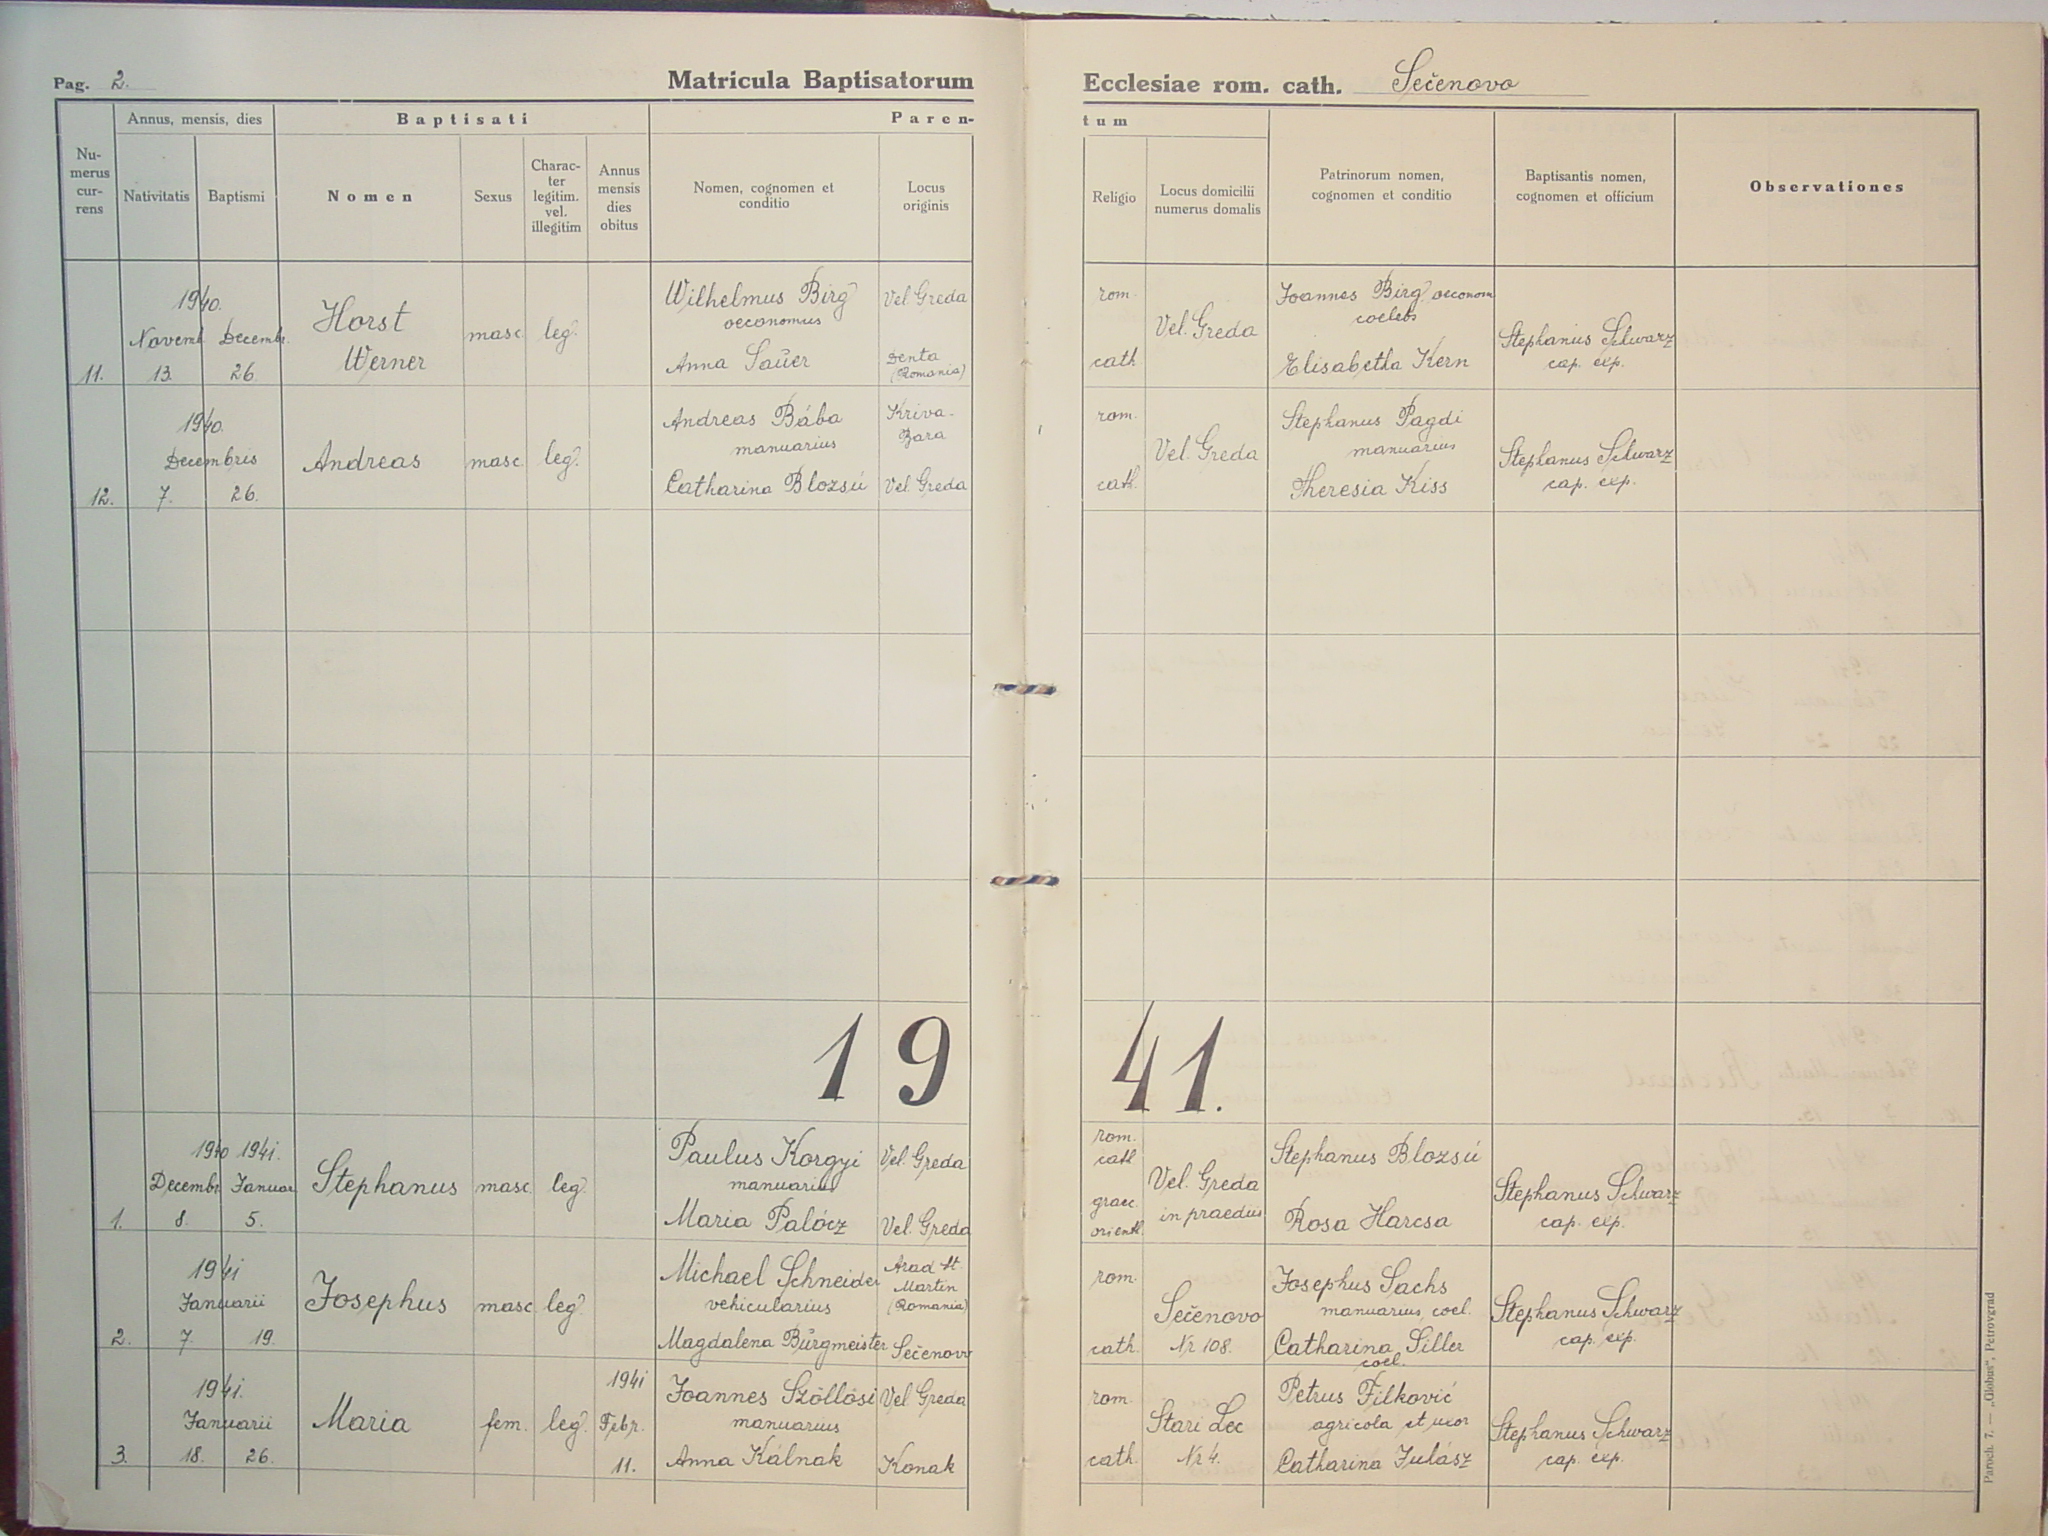 Pag. 2.
Matricula Baptisatorum
Ecclesiae rom. cath. Sečenovo
Numerus currens
Annus, mensis, dies
Nativitatis
Baptismi
Baptisati
Nomen
Sexus
Charac-
ter
legitim.
vel.
illegitim
Annus
mensis
dies
obitus
Paren-
tum
Nomen, cognomen et
conditio
Locus
originis
Religio
Locus domicilii
numerus domalis
Patrinorum nomen,
cognomen et conditio
Baptisantis nomen,
cognomen et officium
Observationes
11.
1940.
Novemb. Decembr.
13. 26.
Horst
Werner
masc. leg.
Wilhelmus Birg
oeconomus
Anna Sauer
Vel. Greda
Denta
(Romania)
rom.
cath.
Vel. Greda
Joannes Birg oeconom
coelebs
Elisabetha Kern
Stephanus Schwarz
cap. exp.
12.
1940.
Decembris
7. 26.
Andreas
masc. leg.
Andreas Bába
manuarius
Catharina Blozsú
Kriva-
Bara
Vel. Greda
rom.
cath.
Vel. Greda
Stephanus Pagdi
manuarius
Theresia Kiss
Stephanus Schwarz
cap. exp.
1941.
1.
1940 1941.
Decembr. Januar.
8. 5.
Stephanus
masc. leg.
Paulus Korgyi
manuarius
Maria Palócz
Vel. Greda
Vel. Greda
rom.
cath
graec.
orientl.
Vel. Greda
in praediis
Stephanus Blozsú
Rosa Harcsa
Stephanus Schwarz
cap. exp.
2.
1941
Januarii
7. 19.
Josephus
masc. leg.
Michael Schneider
vehicularius
Magdalena Burgmeister
Arad St.
Martin
(Romania)
Sečenovo
rom.
cath.
Sečenovo
Nr 108.
Josephus Sachs
manuarius, coel.
Catharina Siller
coel.
Stephanus Schwarz
cap. exp.
3.
1941.
Januarii
18. 26.
Maria
fem. leg.
1941
Febr.
11.
Joannes Szöllösi
manuarius
Anna Kálnak
Vel. Greda
Konak
rom.
cath.
Stari Lec
Nr 4.
Petrus Filković
agricola et uxor
Catharina Juhász
Stephanus Schwarz
cap. exp.
Paroch. 7. — „Globus“, Petrovgrad